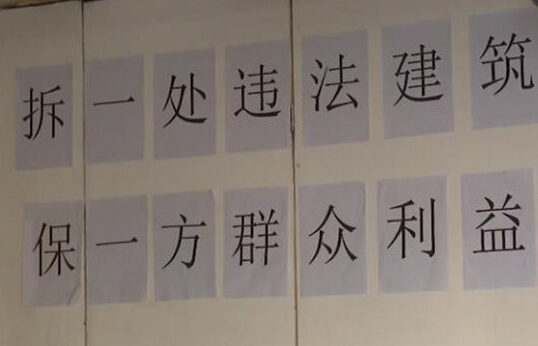 拆一处违法建筑
保一方群众利益